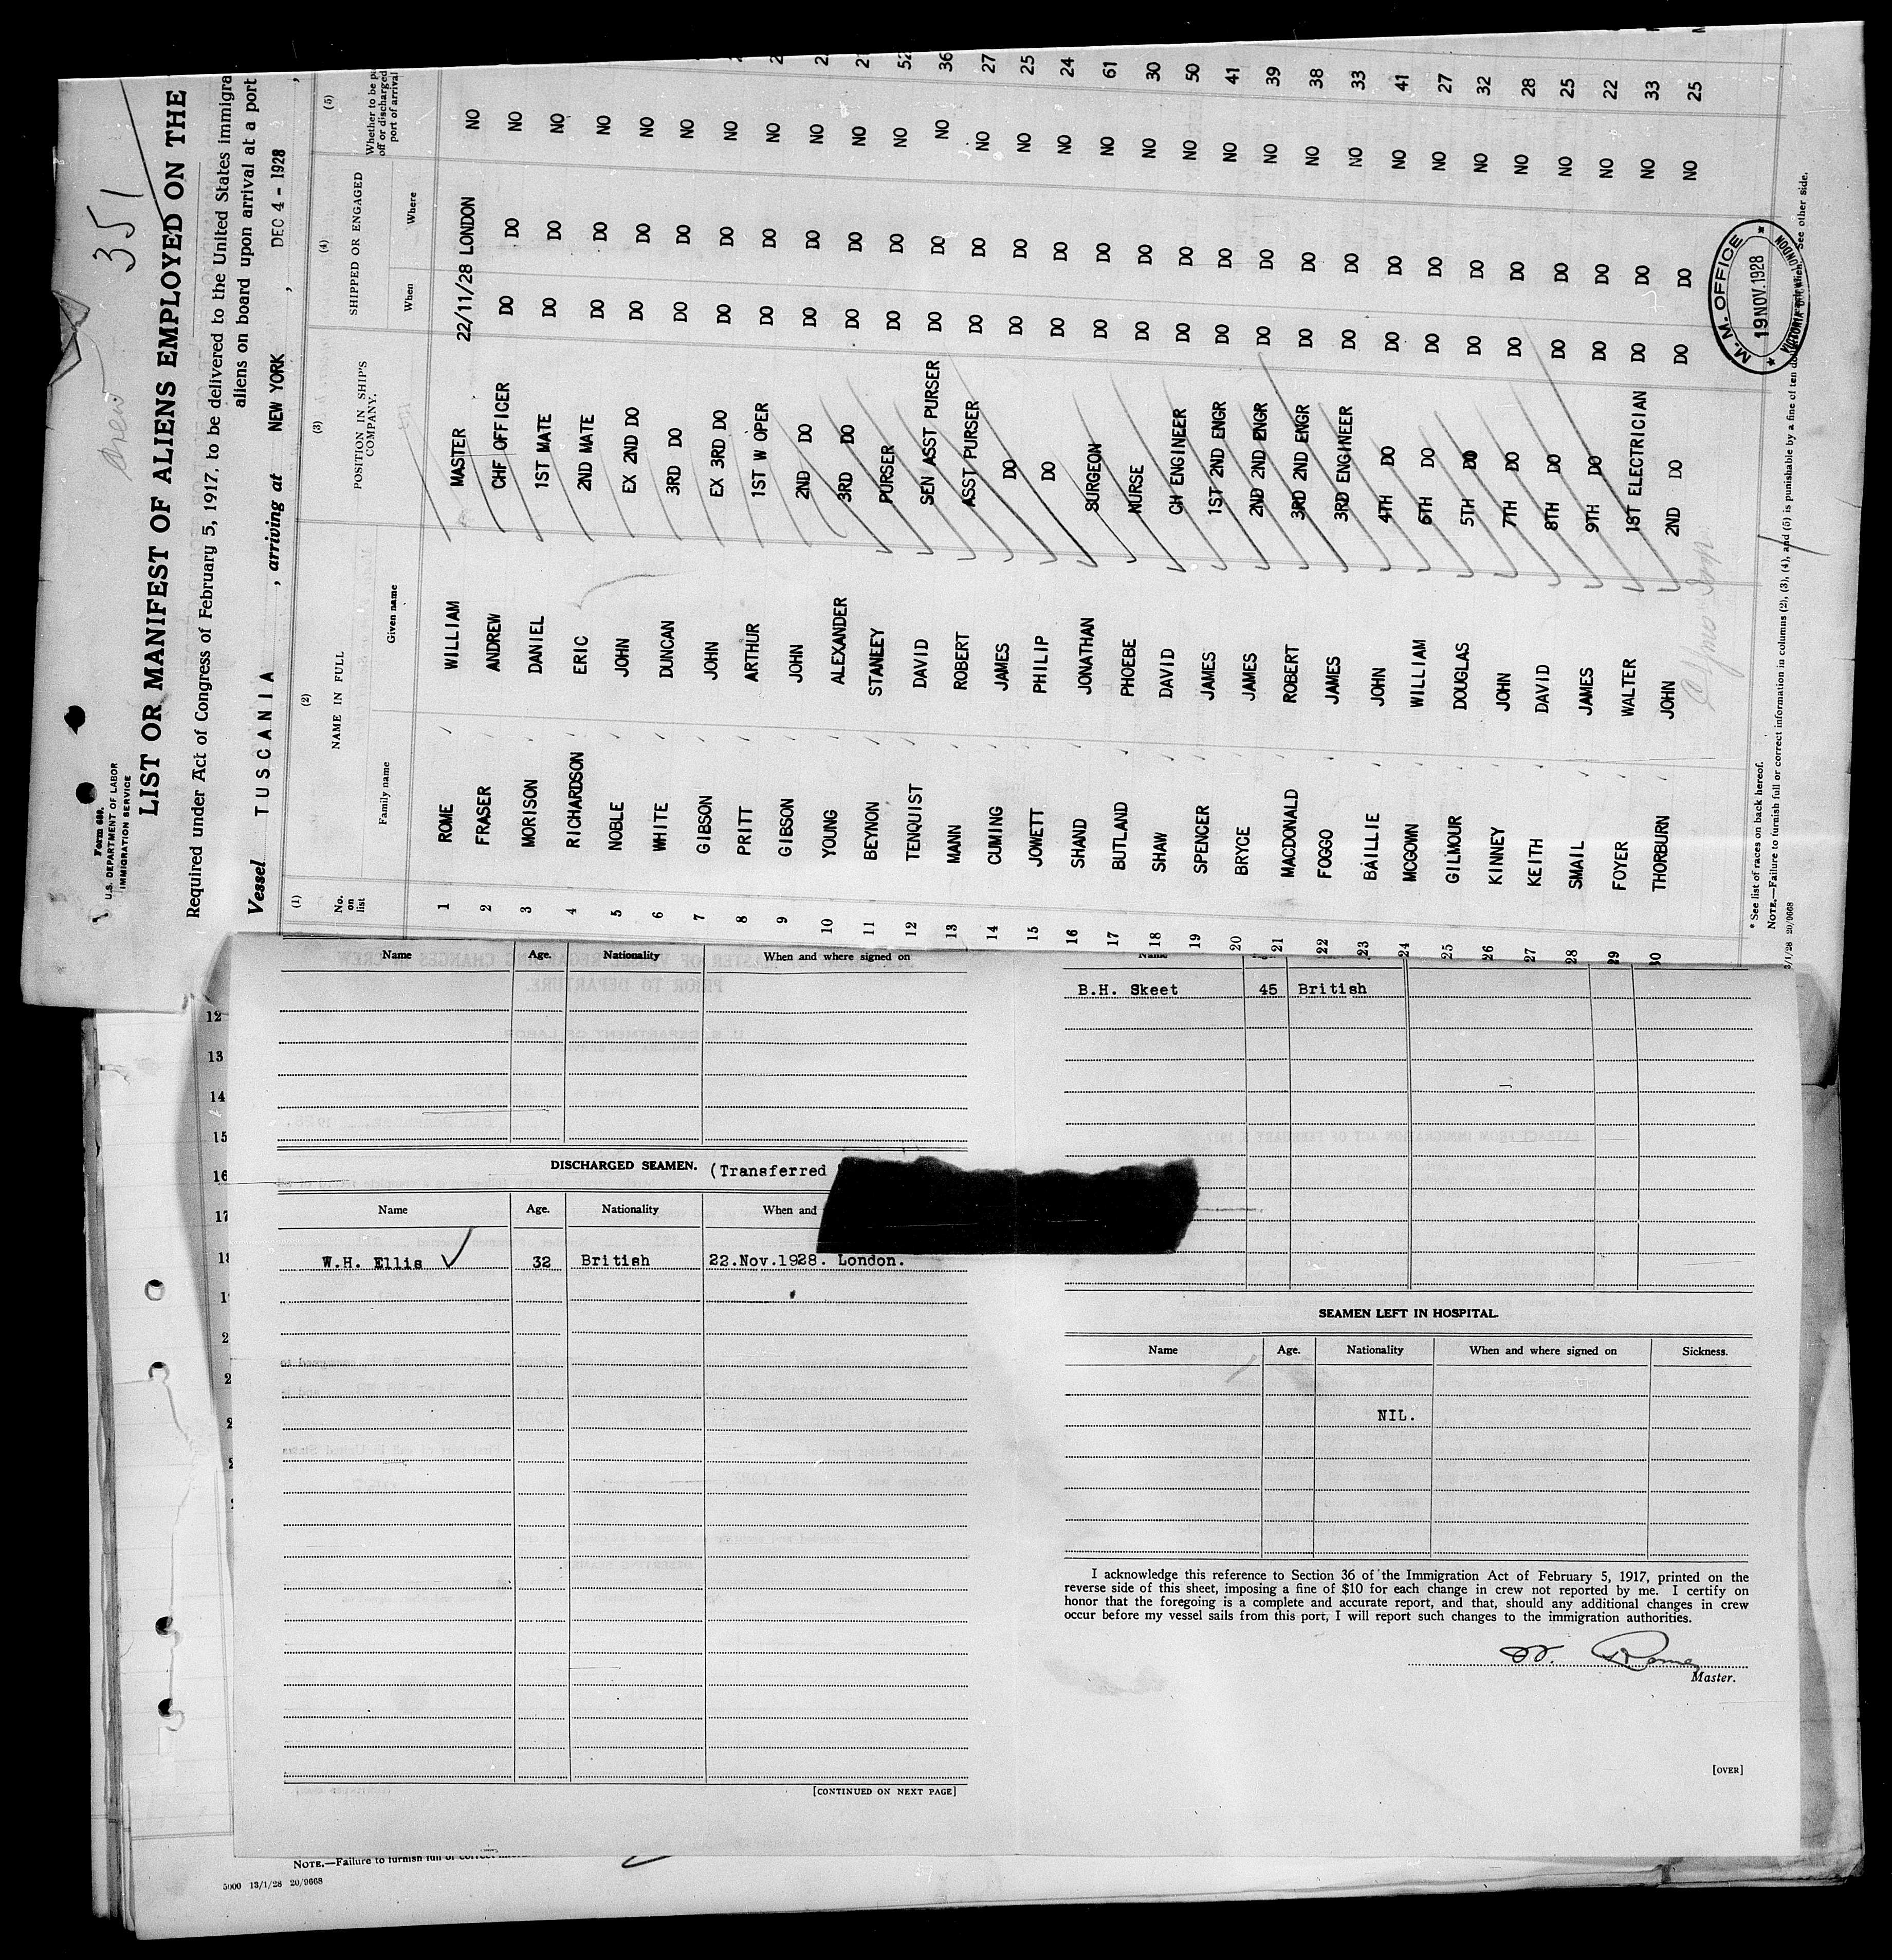 351
Form 689.
U.S. DEPARTMENT OF LABOR
IMMIGRATION SERVICE
LIST OR MANIFEST OF ALIENS EMPLOYED ON THE
Required under Act of Congress of February 5, 1917, to be delivered to the United States immigra
aliens on board upon arrival at a port
Vessel TUSCANIA , arriving at NEW YORK , DEC 4 - 1928 ,
(1) (2) (3) (4) (5)
No. on list NAME IN FULL POSITION IN SHIP'S COMPANY. SHIPPED OR ENGAGED Whether to be pa
off or discharged
port of arrival
Family name Given name When Where
1 ROME WILLIAM MASTER 22/11/28 LONDON NO
2 FRASER ANDREW CHF OFFICER DO DO NO
3 MORISON DANIEL 1ST MATE DO DO NO
4 RICHARDSON ERIC 2ND MATE DO DO NO
5 NOBLE JOHN EX 2ND DO DO DO NO
6 WHITE DUNCAN 3RD DO DO DO NO
7 GIBSON JOHN EX 3RD DO DO DO NO
8 PRITT ARTHUR 1ST W OPER DO DO NO
9 GIBSON JOHN 2ND DO DO DO NO
10 YOUNG ALEXANDER 3RD DO DO DO NO
11 BEYNON STANLEY PURSER DO DO NO
12 TENQUIST DAVID SEN ASST PURSER DO DO NO 36
13 MANN ROBERT ASST PURSER DO DO NO 27
14 CUMING JAMES DO DO DO NO 25
15 JOWETT PHILIP DO DO DO NO 24
16 SHAND JONATHAN SURGEON DO DO NO 61
17 BUTLAND PHOEBE NURSE DO DO NO 30
18 SHAW DAVID CH ENGINEER DO DO NO 50
19 SPENCER JAMES 1ST 2ND ENGR DO DO NO 41
20 BRYCE JAMES 2ND 2ND ENGR DO DO NO 39
21 MACDONALD ROBERT 3RD 2ND ENGR DO DO NO 38
22 FOGGO JAMES 3RD ENGINEER DO DO NO 33
23 BAILLIE JOHN 4TH DO DO DO NO 41
24 MCGOWN WILLIAM 6TH DO DO DO NO 27
25 GILMOUR DOUGLAS 5TH DO DO DO NO 32
26 KINNEY JOHN 7TH DO DO DO NO 28
27 KEITH DAVID 8TH DO DO DO NO 25
28 SMAIL JAMES 9TH DO DO DO NO 22
29 FOYER WALTER 1ST ELECTRICIAN DO DO NO 33
30 THORBURN JOHN 2ND DO DO DO NO 25
M.M. OFFICE
19 NOV. 1928
* See list of races on back hereof.
NOTE.—Failure to furnish full or correct information in columns (2), (3), (4), and (5) is punishable by a fine of ten dollars See other side.
3/1/28 20/9668
Name Age. Nationality When and where signed on
12
13
14
15
16
17
DISCHARGED SEAMEN. (Transferred
Name Age. Nationality When and
W.H. Ellis 32 British 22.Nov.1928. London.
[CONTINUED ON NEXT PAGE]
Name
B.H. Skeet 45 British
SEAMEN LEFT IN HOSPITAL.
Name Age. Nationality When and where signed on Sickness.
NIL.
I acknowledge this reference to Section 36 of the Immigration Act of February 5, 1917, printed on the
reverse side of this sheet, imposing a fine of $10 for each change in crew not reported by me. I certify on
honor that the foregoing is a complete and accurate report, and that, should any additional changes in crew
occur before my vessel sails from this port, I will report such changes to the immigration authorities.
W. Rome
Master.
[OVER]
NOTE.—Failure to furnish full or correct
5000 13/1/28 20/9668